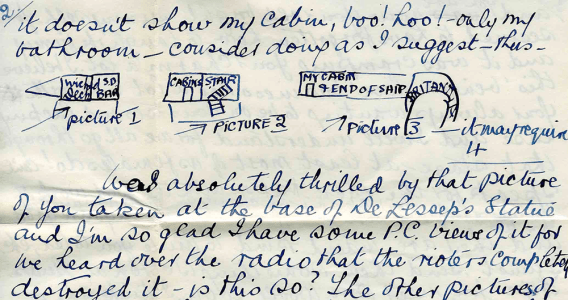 2/
it doesn't show my cabin, boo! hoo! - only my
bathroom - consider doing as I suggest - thus -
Deck S.D. BAR
CABINS STAIR
MY CABIN & END OF SHIP BRITANNIC
picture 1
PICTURE 2
Picture 3 - it may require
4
Was absolutely thrilled by that picture
of you taken at the base of De Lessep's Statue
and I'm so glad I have some P.C. views of it for
we heard over the radio that the rioters completely
destroyed it - is this so? The other pictures of